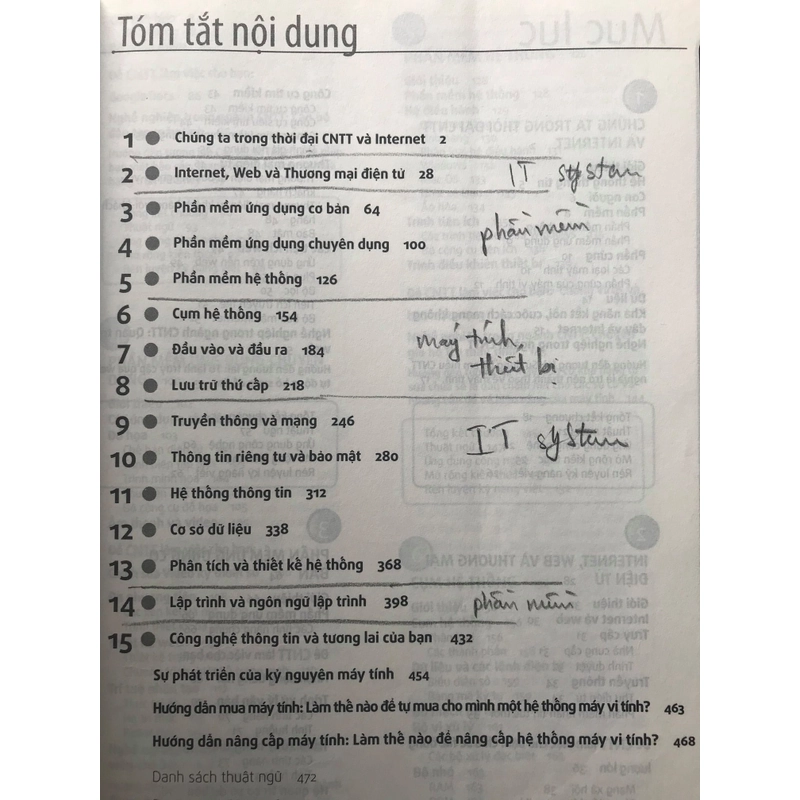 Tóm tắt nội dung
1 Chúng ta trong thời đại CNTT và Internet 2
2 Internet, Web và Thương mại điện tử 28
IT system
3 Phần mềm ứng dụng cơ bản 64
phần mềm
4 Phần mềm ứng dụng chuyên dụng 100
5 Phần mềm hệ thống 126
6 Cụm hệ thống 154
máy tính,
7 Đầu vào và đầu ra 184
thiết bị
8 Lưu trữ thứ cấp 218
9 Truyền thông và mạng 246
IT system
10 Thông tin riêng tư và bảo mật 280
11 Hệ thống thông tin 312
12 Cơ sở dữ liệu 338
13 Phân tích và thiết kế hệ thống 368
14 Lập trình và ngôn ngữ lập trình 398
phần mềm
15 Công nghệ thông tin và tương lai của bạn 432
Sự phát triển của kỷ nguyên máy tính 454
Hướng dẫn mua máy tính: Làm thế nào để tự mua cho mình một hệ thống máy vi tính? 463
Hướng dẫn nâng cấp máy tính: Làm thế nào để nâng cấp hệ thống máy vi tính? 468
Danh sách thuật ngữ 472